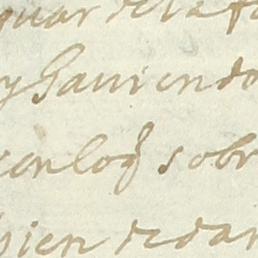 guar de la
y haviendo
en loq sobr
bien de dar